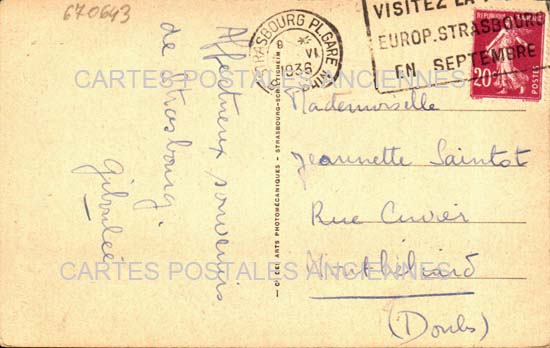 670643
Affectueux souvenirs
de Strasbourg.
Giboulée
STRASBOURG PL. GARE
9 VI
1936
VISITEZ LA
EUROP. STRASBOURG
EN SEPTEMBRE
20
POSTES
Mademoiselle
Jeannette Saintot
Rue Cuvier
Montbéliard
(Doubs)
Cie DES ARTS PHOTOMÉCANIQUES - STRASBOURG-SCHILTIGHEIM
CARTES POSTALES ANCIENNES
CARTES POSTALES ANCIENNES